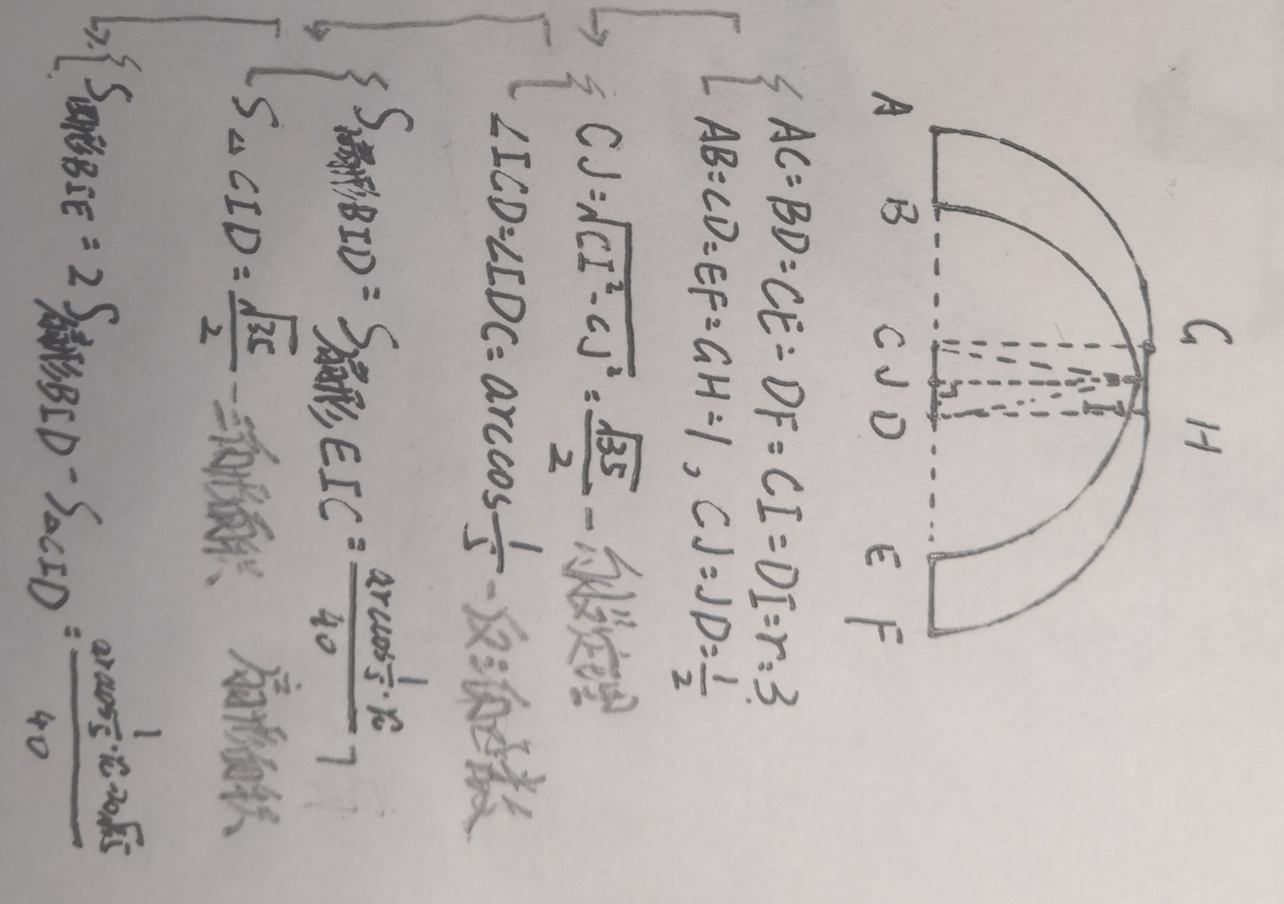 G H
A B C J D E F
I
AC=BD=CE=DF=CI=DI=r=3
AB=CD=EF=GH=1, CJ=JD=1/2
CJ=√(CI²-CJ²)=√35/2 - 勾股定理
∠ICD=∠IDC=arccos 1/5 - 反三角函数
S扇形BID=S扇形EIC=(arccos 1/5·π)/40
S△CID=√35/2 - 三角形面积、扇形面积
BIE=2S扇形BID-S△CID=(arccos 1/5·π-20√35)/40